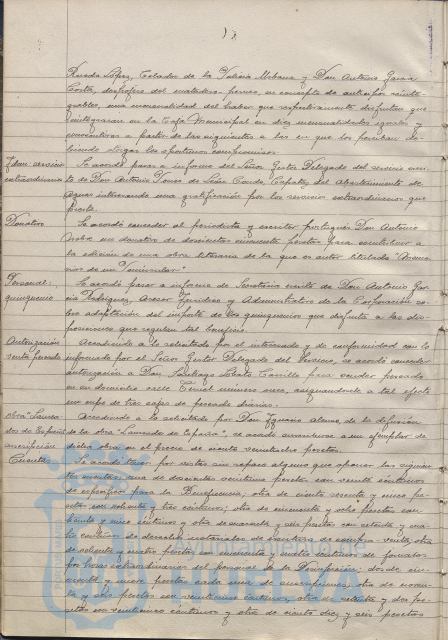 Rueda López, Celador de la Policía Urbana y Don Antonio Garcia
Costa, desfosfero del matadero perros, en concepto de anticipo reinte-
grables, una mensualidad del haber que respectivamente disfrutan que
reintegraran en la Caja Municipal en diez mensualidades iguales y
consecutivas a partir de las siguientes a las en que los perciban de-
biendo otorgar los oportunos compromisos.
Idem servicios Se acordó pasar a informe del Señor Gestor Delegado del servicio escri-
extraordinarios to de Don Antonio Torres de Leon Conde, Capataz del Abastecimiento de
Aguas interesando una gratificación por los servicios extraordinarios que
presta.
Donativo Se acordó conceder al periodista y escritor portugués Don Antonio
un donativo de doscientas cincuenta pesetas para contribuir a
la edición de una obra literaria de la que es autor titulada
de un
Personal: Se acordó pasar a informe de Secretaría escrito de Don Antonio Gar-
quinquenio cia Rodriguez, Asesor Juridico y Administrativo de la Corporación so-
bre adaptación del importe de los quinquenios que disfruta a las dis-
posiciones que regulan tal beneficio.
Autorización Accediendo a lo solicitado por el interesado y de conformidad con lo
venta pescado informado por el Señor Gestor Delegado del Servicio, se acordó conceder
autorización a Don Santiago Carrillo para vender pescado
en su domicilio calle Teruel número once, asignandole a tal efecto
un cupo de tres cajas de pescado diarias.
Obra "Laurea- Accediendo a lo solicitado por Don Ignacio Alonso de la difusión
dos de España" de la obra "Laureados de España", se acordó suscribirse a un ejemplar de
suscripción dicha obra en el precio de ciento veinticinco pesetas.
Cuentas Se acordó pasar por vistas sin reparo alguno que oponer las siguien-
tes cuentas: una de doscientas veintiuna pesetas con veinte céntimos
de específico para la Beneficencia; otra de ciento sesenta y cinco pe-
setas con setenta y tres céntimos; otra de cincuenta y ocho pesetas con
treinta y cinco céntimos y otra de cuarenta y seis pesetas con setenta y cua-
tro céntimos de derechos notariales de escritura de compra-venta, otra
de setenta y cuatro pesetas con cincuenta y cuatro céntimos de jornales
por horas extraordinarias del personal de la Desinfección; dos de cin-
cuenta y nueve pesetas cada una de suscripciones; otra de noven-
ta y seis pesetas con veinticinco céntimos, otra de setenta y dos pe-
setas con veinticinco céntimos y otra de ciento diez y seis pesetas